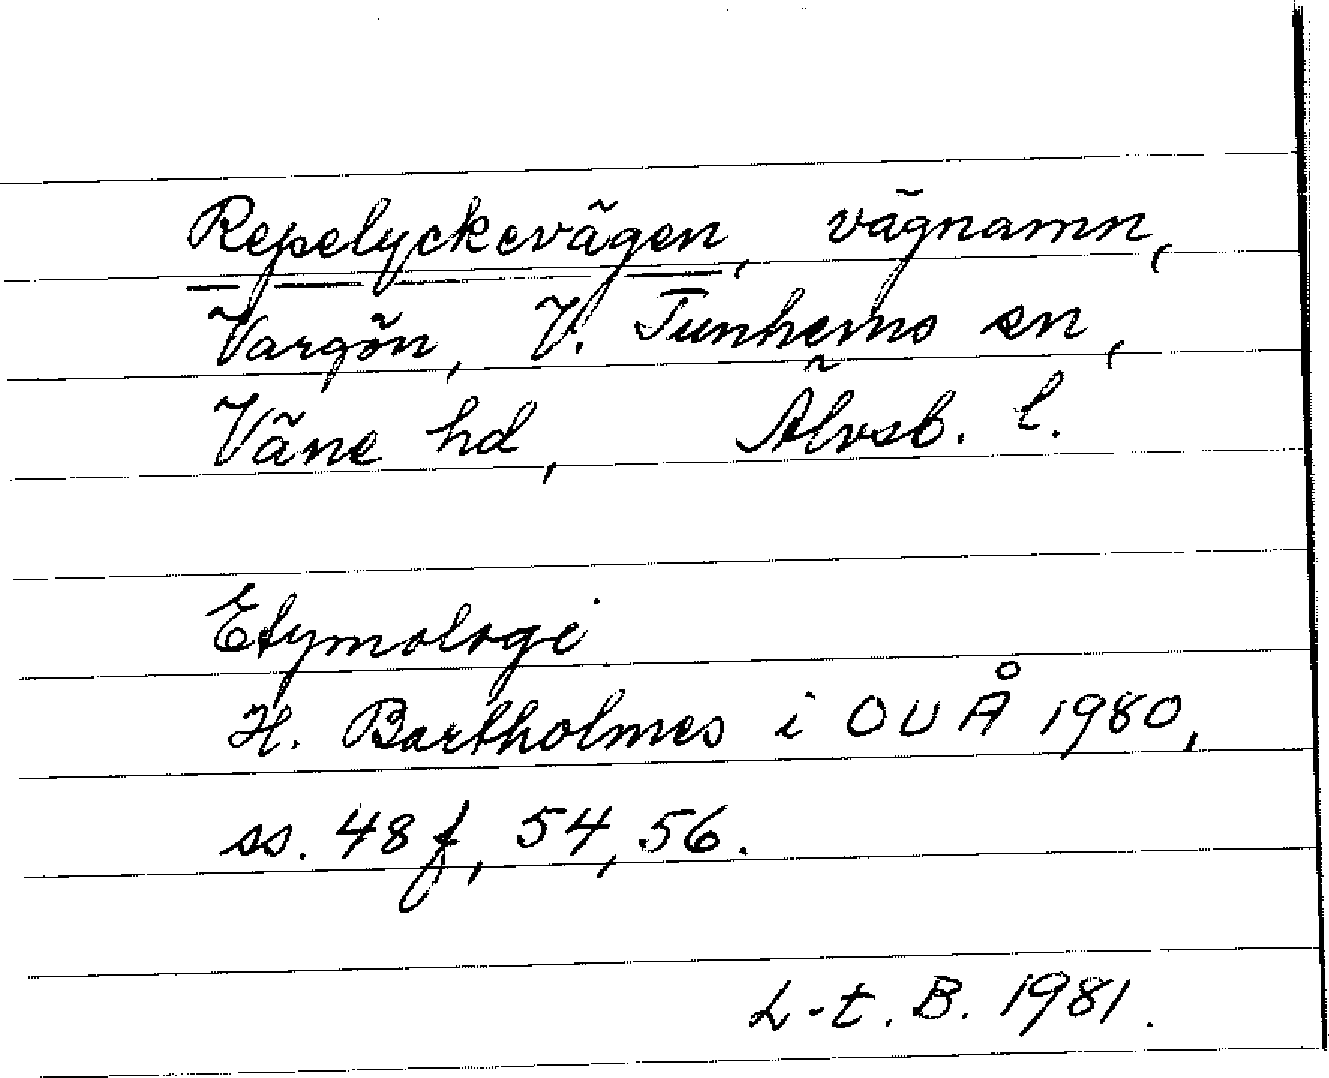 Repelyckevägen, vägnamn,
Vargön, V. Tunhems sn,
Väne hd, Älvsb. l.
Etymologi
H. Bartholmes i OUÅ 1980,
ss. 48 f, 54, 56.
L-t. B. 1981.